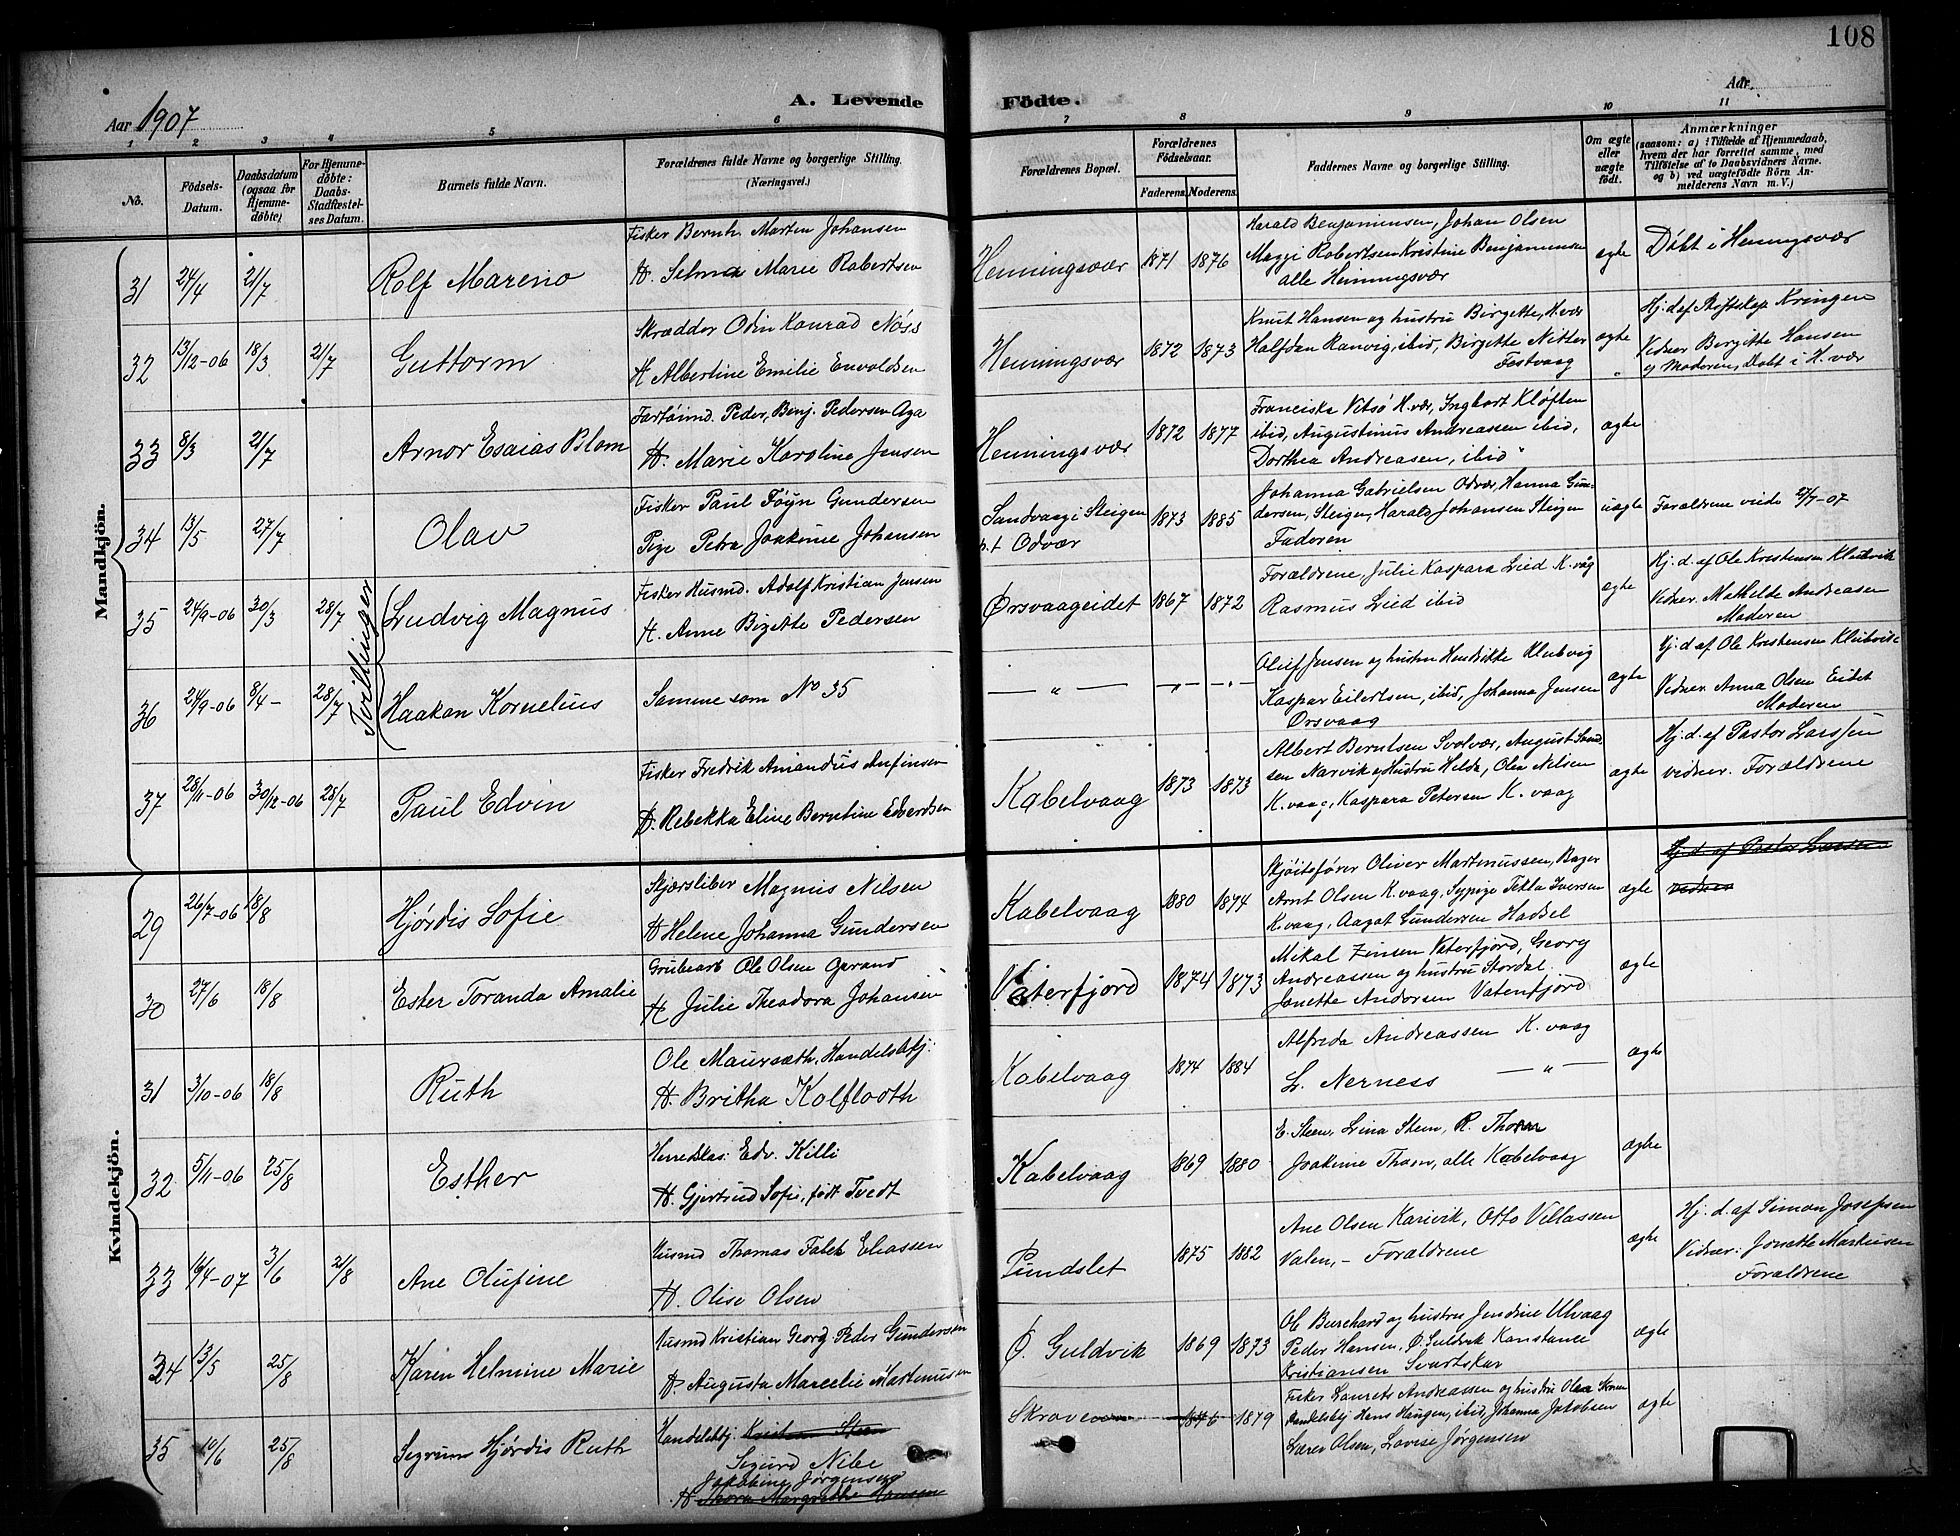 108
Aar 1907
A. Levende Födte.
Aar
1 2 3 4 5 6 7 8 9 10 11
No.
Födsels-Datum.
Daabsdatum (ogsaa for Hjemme-döbte)
For Hjemme-döbte: Daabs-Stadfæstel-ses Datum.
Barnets fulde Navn.
Forældrenes fulde Navne og borgerlige Stilling. (Næringsvei.)
Forældrenes Bopæl.
Forældrenes Födselsaar.
Faderens. Moderens.
Faddernes Navne og borgerlige Stilling.
Om ægte eller uægte födt.
Anmærkninger (saasom: a) i Tilfælde af Hjemmedaab, hvem der har forrettet samme, med Tilföielse af to Daabsvidners Navne. og b) ved uægtefödte Börn An-melderens Navn m. V.)
Mandkjön.
31 24/4 21/7 Rolf Mareno
Fisker Bernh. Marten Johansen
H. Selma Marie Robertsen
Henningsvær 1871 1876
Harald Benjaminsen, Johan Olsen
Maggi Robertsen Kristine Benjaminsen
alle Henningsvær
ægte
Döbt i Henningsvær
32 13/12-06 18/3 21/7 Guttorm
Skrædder Odin Konrad Nöss
H Albertine Emilie Envoldsen
Henningsvær 1872 1873
Knut Hansen og hustru Birgette, H.vær
Halfdan Ranvig, ibid, Birgitte Nitter
Festvaag
ægte
Hj. d af Kringen
Vidner Bergitte Hansen
og Moderen, Döbt i H. vær
33 8/3 21/7 Arnor Esaias Blom
Fartöimd. Peder, Benj. Pedersen Aga
H. Marie Karoline Jensen
Henningsvær 1872 1877
Franciska Vitsö H.vær, Ingbort Klöften
ibid, Augustinus Andreassen ibid,
Dorthea Andreasen, ibid
ægte
34 13/5 27/7 Olav
Fisker Paul Föyn Gundersen
Pige Petra Joakime Johansen
Sandvaag i Steigen
p.t Odvær 1873 1885
Johanna Gabrielsen Odvær, Hanna Gun-
dersen, Steigen, Harald Johansen Steigen
Faderen
uægte
Forældrene viede 27/7-07
Tvillinger
35 24/9-06 30/3 28/7 Ludvig Magnus
Fisker Husmd. Adolf Kristian Jensen
H. Anne Birgitte Pedersen
Ørsvaageidet 1867 1872
Forældrene, Julie Kaspara Lied K.våg
Rasmus Lied ibid
ægte
Hj. d. af Ole Kristensen Klubvik
Vidner. Mathilde Andreasen
Moderen
36 24/9-06 8/4- 28/7 Haakon Kornelius
Samme som No 35
— " — — " — — " —
Oluf Jensen og hustru Hendrikke Klubvig
Kaspar Eilertsen, ibid, Johanna Jensen
Orsvaag
ægte
Hj. d af Ole Kristensen Klubvik
Vidner. Anna Olsen Eidet
Moderen
37 28/11-06 30/12-06 28/7 Paul Edvin
Fisker Fredrik Amandus Anfinsen
H. Rebekka Eline Berntine Edvardsen
Kabelvaag 1873 1873
Albert Berntsen Svolvær, August Svend-
sen Narvik og Hustru Helda, Ole Nelsen
K.vaag, Kaspara Petersen K. vaag
ægte
Hj. d. af Pastor Larssen
vidner. Forældrene
Kvindekjön.
29 26/7-06 18/8 Hjördis Sofie
Skjærsliber Magnus Nilsen
H Helene Johanna Gundersen
Kabelvaag 1880 1874
Skjöitefører Oliver Martinussen, Bager
Arnt Olsen K.vaag, Sypige Tekla Iversen
K.vaag, Aagot Gundersen Hadsel
ægte
Hj. d. af Pastor Larssen
vidner
30 27/6 18/8 Ester Toranda Amalie
Grubearb Ole Olsen Gerand
H Julie Theodora Johansen
Vaterfjord 1874 1873
Mikal Zinsen Vaterfjord, Georg
Andreassen og hustru Stordal.
Janette Andorsen Vatenfjord
ægte
31 3/10-06 18/8 Ruth
Ole Maursæth, Handelsbtj:
H. Britha Kolflaath
Kabelvaag 1874 1884
Alfreda Andreassen K. vaag
L. Nerness — " —
ægte
32 5/11-06 25/8 Esther
Herredskas: Edv. Killi
H. Gjertrud Sofie, født Tvedt
Kabelvaag 1869 1880
E. Steen, Lina Steen, R. Thom
Joakime Thom, alle Kabelvaag
ægte
33 16/4-07 3/6 21/8 Ane Olufine
Husmd Thomas Falck Eliassen
H. Olise Olsen
Pundslet 1875 1882
Ane Olsen Karivik, Otto Villassen
Valen, - Forældrene
ægte
Hj. d. af Simon Josefsen
Vidner: Jonette Markusen
Forældrene
34 13/5 25/8 Karen Helmine Marie
Husmd Kristian Georg Peder Gundersen
H. Augusta Marcelie Martinusen
Ø. Guldvik 1869 1873
Ole Burchard og hustru Jendine Ulvaag
Peder Hansen, Ø. Guldvik Konstance
Kristiansen Svartskar
ægte
35 10/6 25/8 Sigrun Hjördis Ruth
Handelsbtj: Kristian Steen
Sigurd Nibe
Jakobine Jørgensen
H Thora Margrethe Hansen
Skroven 1876 1879
Fisker Laurets Andreassen og hustru Olea Skroven
Handelsbtj Hans Haugen, ibid, Johanna Jakobsen
Lærer Olsen, Lovise Jørgensen
ægte